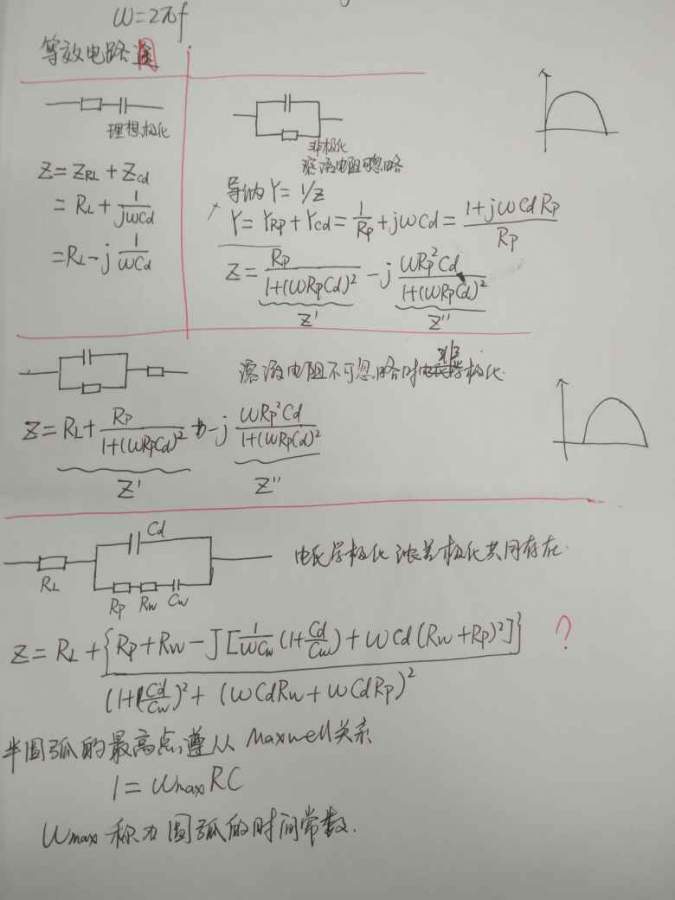 ω=2πf
等效电路图
理想极化
Z=Z_RL+Z_Cd
=R_L+1/(jωCd)
=R_L-j 1/(ωCd)
非极化
溶液电阻可忽略
导纳Y=1/Z
Y=Y_Rp+Y_Cd=1/Rp+jωCd=(1+jωCdRp)/Rp
Z=Rp/(1+(ωRpCd)²)-j ωRp²Cd/(1+(ωRpCd)²)
Z' Z''
溶液电阻不可忽略时 非极化
Z=R_L+Rp/(1+(ωRpCd)²)-j ωRp²Cd/(1+(ωRpCd)²)
Z' Z''
Cd
R_L
Rp Rw Cw
电化学极化浓差极化共同存在
Z=R_L+{Rp+Rw-J[1/(ωCw)(1+Cd/Cw)+ωCd(Rw+Rp)²]}/((1+Cd/Cw)²+(ωCdRw+ωCdRp)²) ?
半圆弧的最高点遵从Maxwell关系
1=ωmaxRC
ωmax称为圆弧的时间常数.